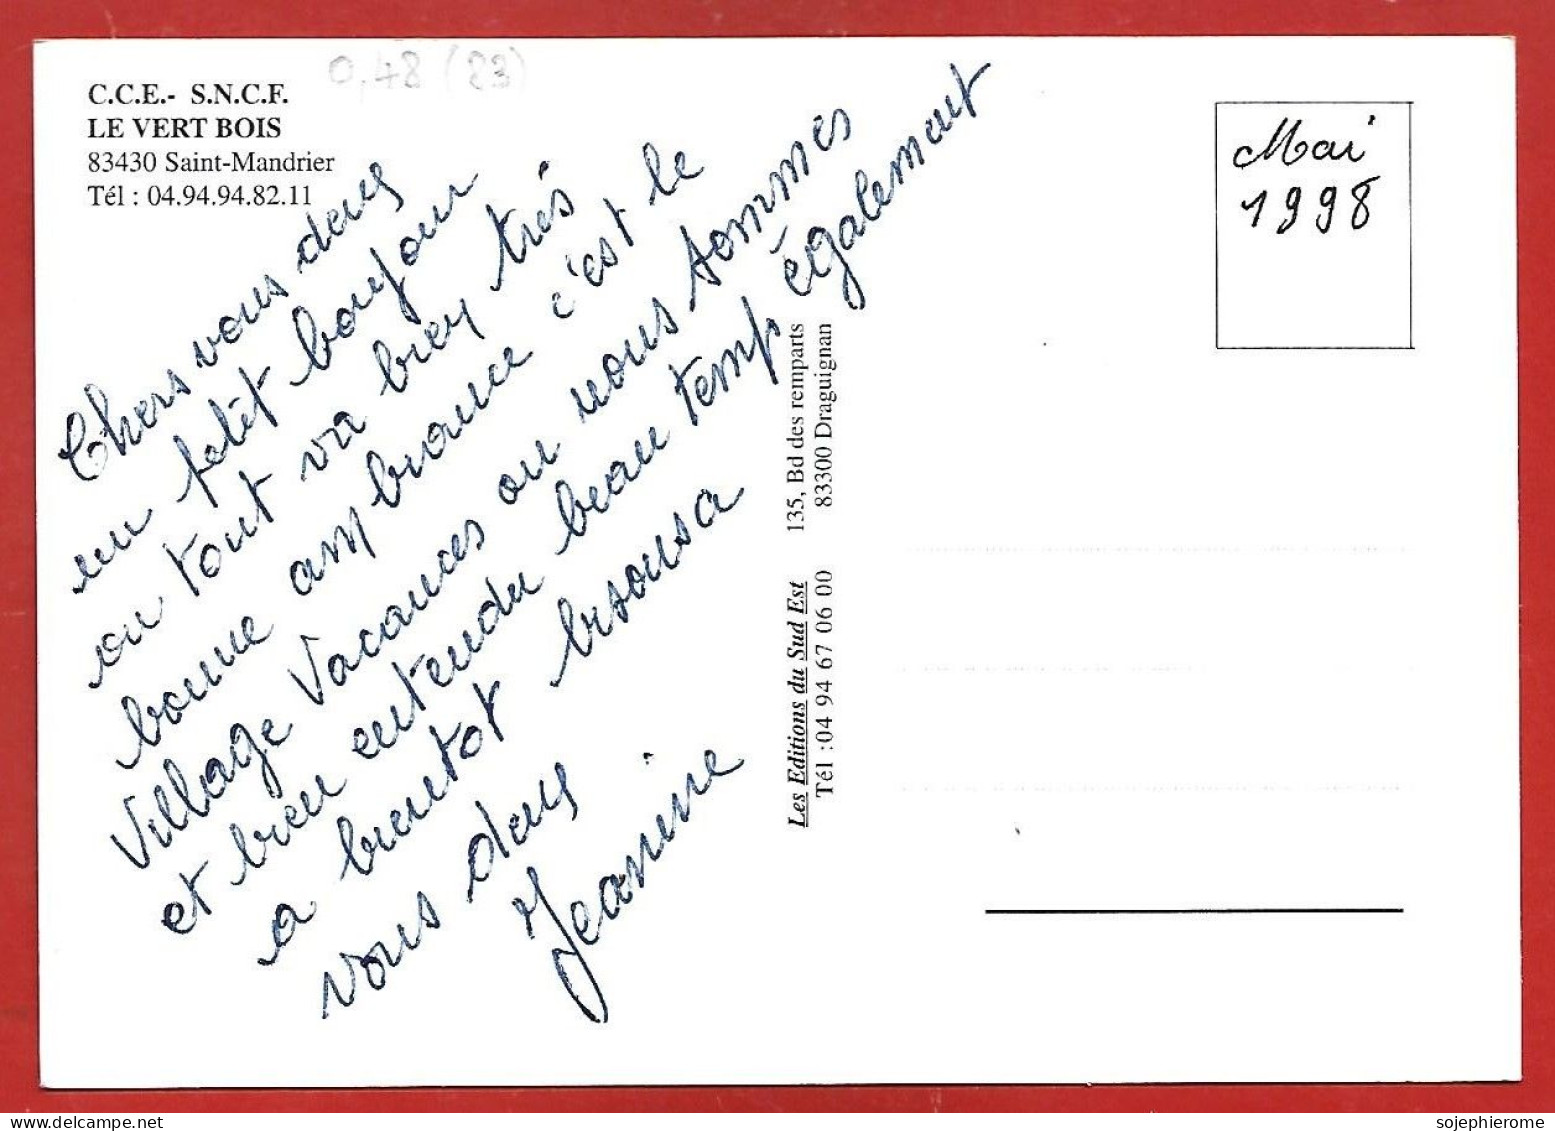 0,48 (83)
C.C.E.- S.N.C.F.
LE VERT BOIS
83430 Saint-Mandrier
Tél : 04.94.94.82.11
Chers vous deux
un petit bonjour
ou tout va bien très
bonne ambiance c'est le
Village Vacances ou nous sommes
et bien entendu beau temps également
a bientot bisous a
vous deux
Jeanine
Les Editions du Sud Est 135, Bd des remparts
Tél :04 94 67 06 00 83300 Draguignan
Mai
1998
sojephierome